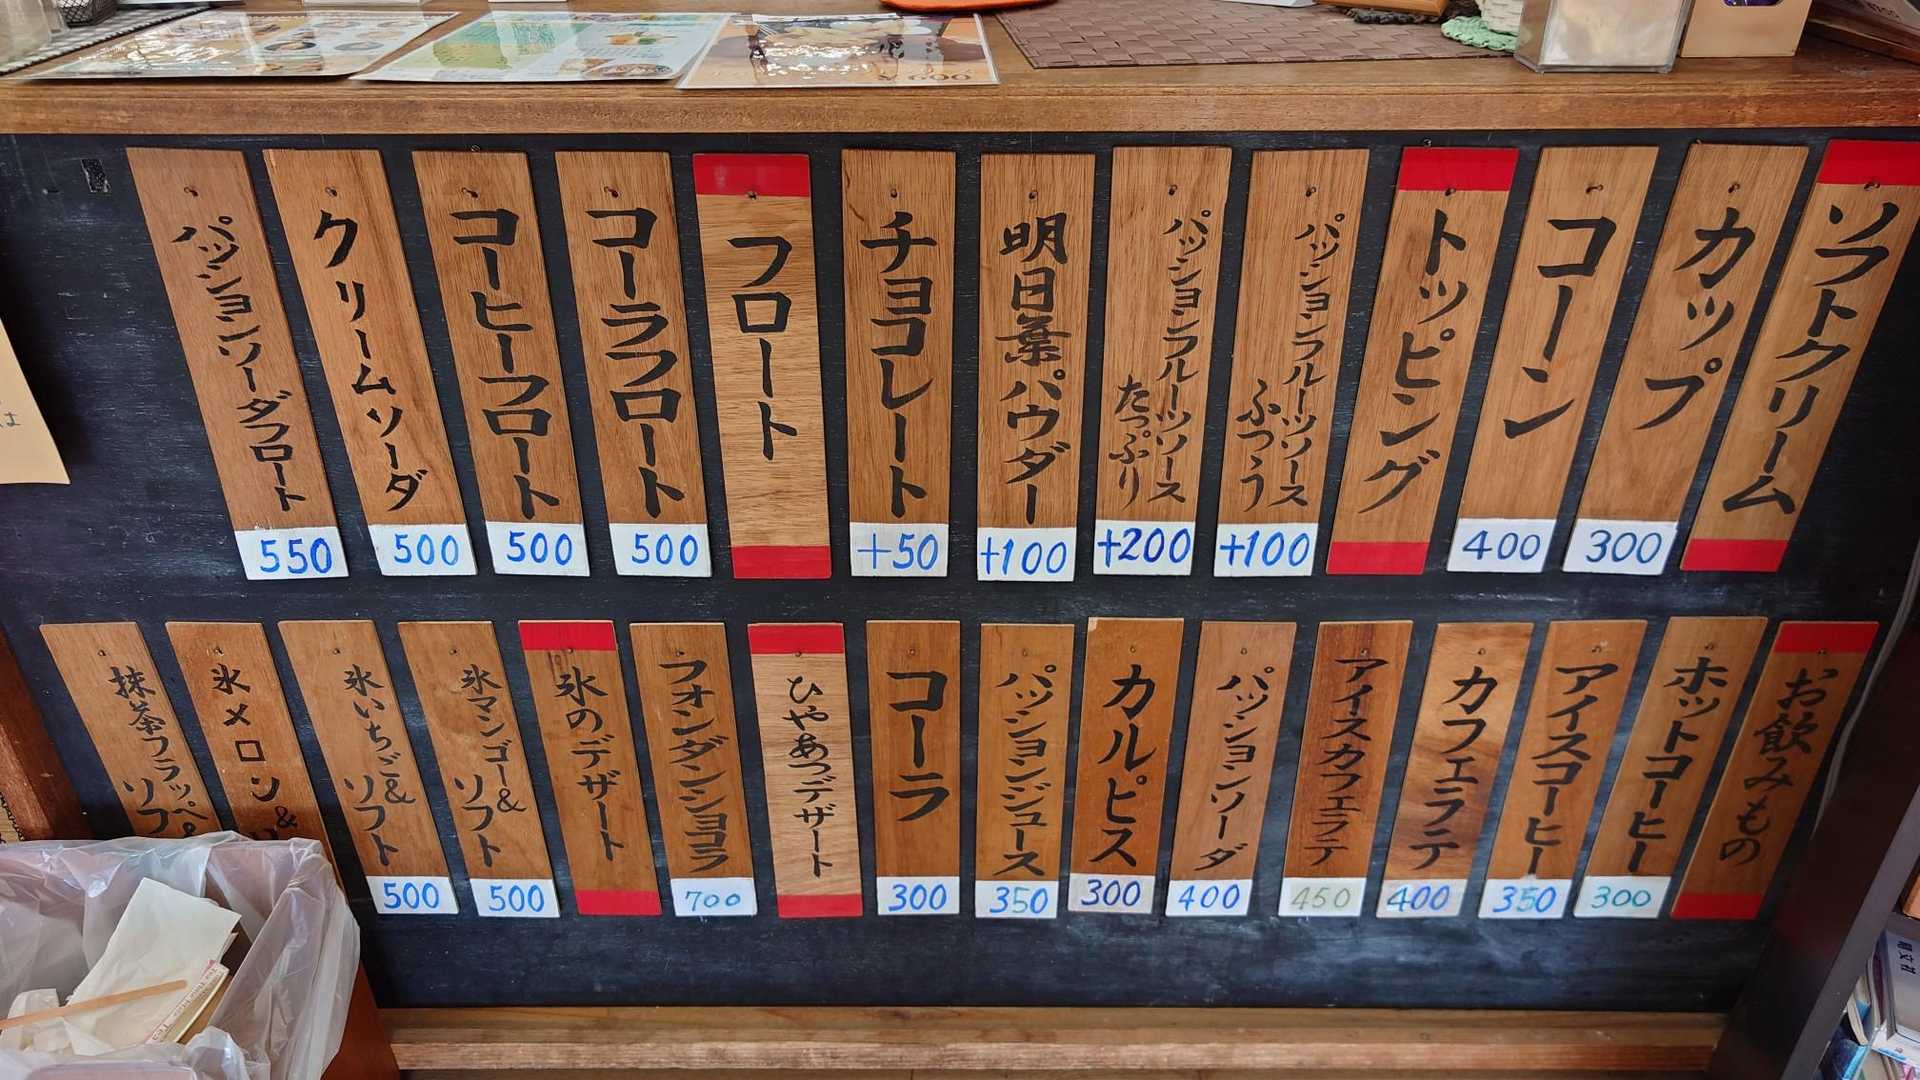 ソフトクリーム
カップ
300
コーン
400
トッピング
パッションフルーツソース
ふつう
+100
パッションフルーツソース
たっぷり
+200
明日葉パウダー
+100
チョコレート
+50
フロート
コーラフロート
500
コーヒーフロート
500
クリームソーダ
500
パッションソーダフロート
550
お飲みもの
ホットコーヒー
300
アイスコーヒー
350
カフェラテ
400
アイスカフェラテ
450
パッションソーダ
400
カルピス
300
パッションジュース
350
コーラ
300
ひやあつデザート
フォンダンショコラ
700
氷のデザート
氷マンゴー&
ソフト
500
氷いちご&
ソフト
500
氷メロン&
抹茶フラッペ&
ソフ
昭文社